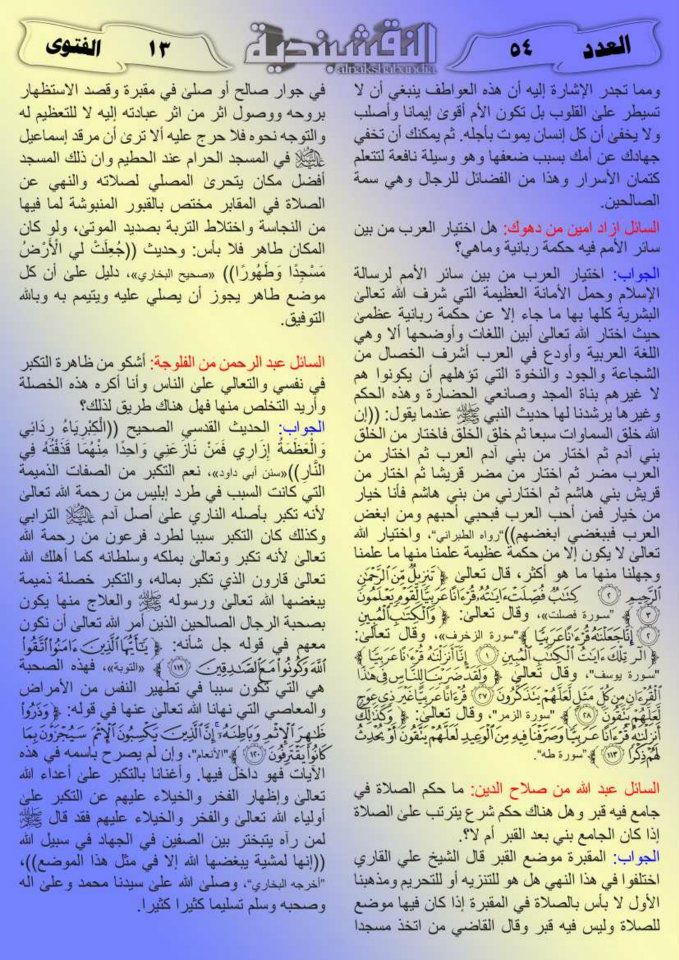 العدد ٥٤
النقشبندية
alnakshabandia
١٣ الفتوى
ومما تجدر الإشارة إليه أن هذه العواطف ينبغي أن لا
تسيطر على القلوب بل تكون الأم أقوى إيمانا وأصلب
ولا يخفى أن كل إنسان يموت بأجله. ثم يمكنك أن تخفي
جهادك عن أمك بسبب ضعفها وهو وسيلة نافعة لتتعلم
كتمان الأسرار وهذا من الفضائل للرجال وهي سمة
الصالحين.
السائل ازاد امين من دهوك: هل اختيار العرب من بين
سائر الأمم فيه حكمة ربانية وماهي؟
الجواب: اختيار العرب من بين سائر الأمم لرسالة
الإسلام وحمل الأمانة العظيمة التي شرف الله تعالى
البشرية كلها بها ما جاء إلا عن حكمة ربانية عظمى
حيث اختار الله تعالى أبين اللغات وأوضحها ألا وهي
اللغة العربية وأودع في العرب أشرف الخصال من
الشجاعة والجود والنخوة التي تؤهلهم أن يكونوا هم
لا غيرهم بناة المجد وصانعي الحضارة وهذه الحكم
وغيرها يرشدنا لها حديث النبي ﷺ عندما يقول: ((إن
الله خلق السماوات سبعا ثم خلق الخلق فاختار من الخلق
بني آدم ثم اختار من بني آدم العرب ثم اختار من
العرب مضر ثم اختار من مضر قريشا ثم اختار من
قريش بني هاشم ثم اختارني من بني هاشم فأنا خيار
من خيار فمن أحب العرب فبحبي أحبهم ومن ابغض
العرب فببغضي ابغضهم))"رواه الطبراني"، واختيار الله
تعالى لا يكون إلا من حكمة عظيمة علمنا منها ما علمنا
وجهلنا منها ما هو أكثر، قال تعالى ﴿ تَنزِيلٌ مِّنَ ٱلرَّحْمَٰنِ
ٱلرَّحِيمِ ٢ كِتَٰبٌ فُصِّلَتْ ءَايَٰتُهُۥ قُرْءَانًا عَرَبِيًّا لِّقَوْمٍ يَعْلَمُونَ
٣ ﴾"سورة فصلت"، وقال تعالى: ﴿ وَٱلْكِتَٰبِ ٱلْمُبِينِ
٢ إِنَّا جَعَلْنَٰهُ قُرْءَٰنًا عَرَبِيًّا ﴾"سورة الزخرف"، وقال تعالى:
﴿ الٓر تِلْكَ ءَايَٰتُ ٱلْكِتَٰبِ ٱلْمُبِينِ ١ إِنَّآ أَنزَلْنَٰهُ قُرْءَٰنًا عَرَبِيًّا ﴾
"سورة يوسف"، وقال تعالى ﴿ وَلَقَدْ ضَرَبْنَا لِلنَّاسِ فِى هَٰذَا
ٱلْقُرْءَانِ مِن كُلِّ مَثَلٍ لَّعَلَّهُمْ يَتَذَكَّرُونَ ٢٧ قُرْءَانًا عَرَبِيًّا غَيْرَ ذِى عِوَجٍ
لَّعَلَّهُمْ يَتَّقُونَ ٢٨ ﴾"سورة الزمر"، وقال تعالى: ﴿ وَكَذَٰلِكَ
أَنزَلْنَٰهُ قُرْءَانًا عَرَبِيًّا وَصَرَّفْنَا فِيهِ مِنَ ٱلْوَعِيدِ لَعَلَّهُمْ يَتَّقُونَ أَوْ يُحْدِثُ
لَهُمْ ذِكْرًا ١١٣ ﴾"سورة طه".
السائل عبد الله من صلاح الدين: ما حكم الصلاة في
جامع فيه قبر وهل هناك حكم شرع يترتب على الصلاة
إذا كان الجامع بني بعد القبر أم لا؟.
الجواب: المقبرة موضع القبر قال الشيخ علي القاري
اختلفوا في هذا النهي هل هو للتنزيه أو للتحريم ومذهبنا
الأول لا بأس بالصلاة في المقبرة إذا كان فيها موضع
للصلاة وليس فيه قبر وقال القاضي من اتخذ مسجدا
في جوار صالح أو صلى في مقبرة وقصد الاستظهار
بروحه ووصول اثر من اثر عبادته إليه لا للتعظيم له
والتوجه نحوه فلا حرج عليه ألا ترى أن مرقد إسماعيل
عليه السلام في المسجد الحرام عند الحطيم وان ذلك المسجد
أفضل مكان يتحرى المصلي لصلاته والنهي عن
الصلاة في المقابر مختص بالقبور المنبوشة لما فيها
من النجاسة واختلاط التربة بصديد الموتى، ولو كان
المكان طاهر فلا بأس: وحديث ((جُعِلَتْ لي الأَرْضُ
مَسْجِدًا وَطَهُورًا)) «صحيح البخاري»، دليل على أن كل
موضع طاهر يجوز أن يصلي عليه ويتيمم به وبالله
التوفيق.
السائل عبد الرحمن من الفلوجة: أشكو من ظاهرة التكبر
في نفسي والتعالي على الناس وأنا أكره هذه الخصلة
وأريد التخلص منها فهل هناك طريق لذلك؟
الجواب: الحديث القدسي الصحيح ((الْكِبْرِيَاءُ رِدَائِي
وَالْعَظَمَةُ إِزَارِي فَمَنْ نَازَعَنِي وَاحِدًا مِنْهُمَا قَذَفْتُهُ فِي
النَّارِ))«سنن أبي داود»، نعم التكبر من الصفات الذميمة
التي كانت السبب في طرد إبليس من رحمة الله تعالى
لأنه تكبر بأصله الناري على أصل آدم عليه السلام الترابي
وكذلك كان التكبر سببا لطرد فرعون من رحمة الله
تعالى لأنه تكبر وتعالى بملكه وسلطانه كما أهلك الله
تعالى قارون الذي تكبر بماله، والتكبر خصلة ذميمة
يبغضها الله تعالى ورسوله ﷺ والعلاج منها يكون
بصحبة الرجال الصالحين الذين أمر الله تعالى أن نكون
معهم في قوله جل شأنه: ﴿ يَٰٓأَيُّهَا ٱلَّذِينَ ءَامَنُوا۟ ٱتَّقُوا۟
ٱللَّهَ وَكُونُوا۟ مَعَ ٱلصَّٰدِقِينَ ١١٩ ﴾ «التوبة»، فهذه الصحبة
هي التي تكون سببا في تطهير النفس من الأمراض
والمعاصي التي نهانا الله تعالى عنها في قوله: ﴿ وَذَرُوا۟
ظَٰهِرَ ٱلْإِثْمِ وَبَاطِنَهُۥٓ إِنَّ ٱلَّذِينَ يَكْسِبُونَ ٱلْإِثْمَ سَيُجْزَوْنَ بِمَا
كَانُوا۟ يَقْتَرِفُونَ ١٢٠ ﴾"الأنعام"، وإن لم يصرح بأسمه في هذه
الآيات فهو داخل فيها. وأغنانا بالتكبر على أعداء الله
تعالى وإظهار الفخر والخيلاء عليهم عن التكبر على
أولياء الله تعالى والفخر والخيلاء عليهم فقد قال ﷺ
لمن رآه يتبختر بين الصفين في الجهاد في سبيل الله
((إنها لمشية يبغضها الله إلا في مثل هذا الموضع))،
"أخرجه البخاري"، وصلى الله على سيدنا محمد وعلى اله
وصحبه وسلم تسليما كثيرا كثيرا.